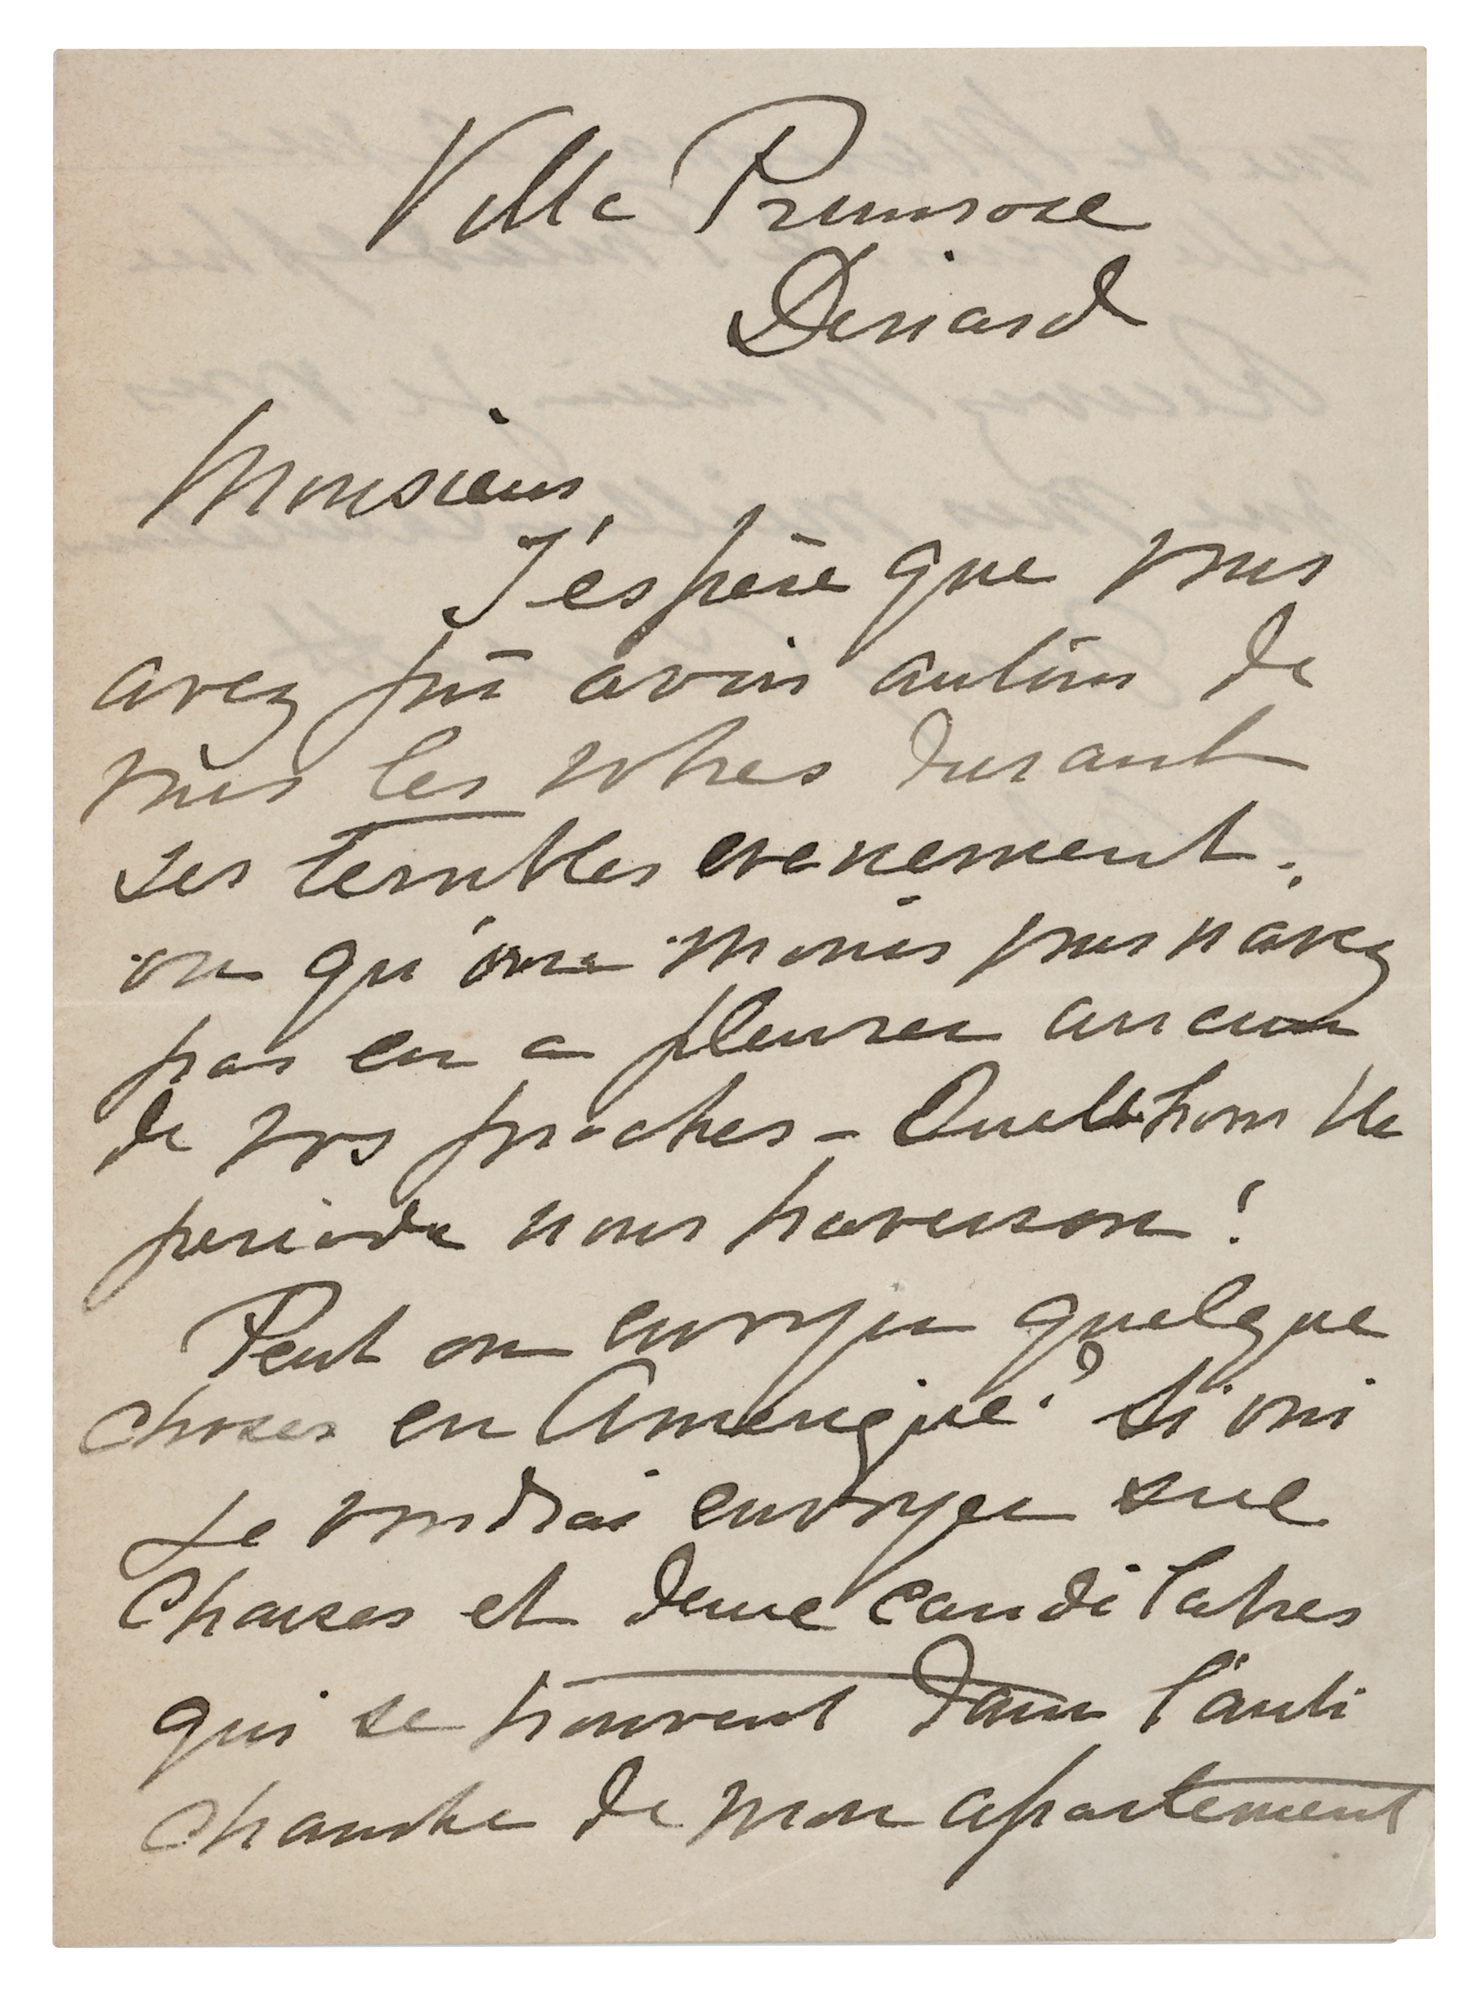 Villa Primrose
Dinard
Monsieur,
J'espère que vous
avez pû avoir autour de
vous les votres durant
ses terribles evenement.
ou qu'au moins vous n'avez
pas eu a pleurer aucun
de vos proches - Quelle horrible
periode nous traverson !
Peut on envoyer quelque
choses en Amerique ? Si oui
Je voudrai envoyer six
Chaises et deux candilabres
qui se trouvent dans l'anti
chambre de mon apartement